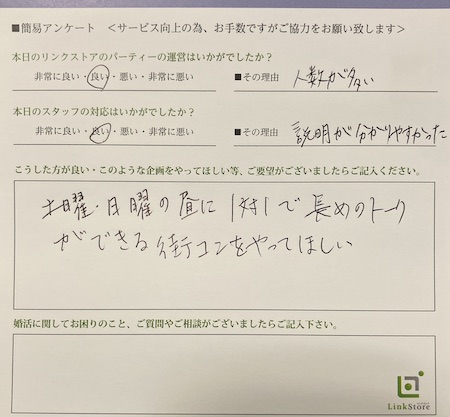 ■簡易アンケート ＜サービス向上の為、お手数ですがご協力をお願い致します＞
本日のリンクストアのパーティーの運営はいかがでしたか？
非常に良い・良い・悪い・非常に悪い ■その理由 人数が多い
本日のスタッフの対応はいかがでしたか？
非常に良い・良い・悪い・非常に悪い ■その理由 説明が分かりやすかった
こうした方が良い・このような企画をやってほしい等、ご要望がございましたらご記入ください。
土曜・日曜の昼に1対1で長めのトーク
ができる街コンをやってほしい
婚活に関してお困りのこと、ご質問やご相談がございましたらご記入下さい。
LinkStore